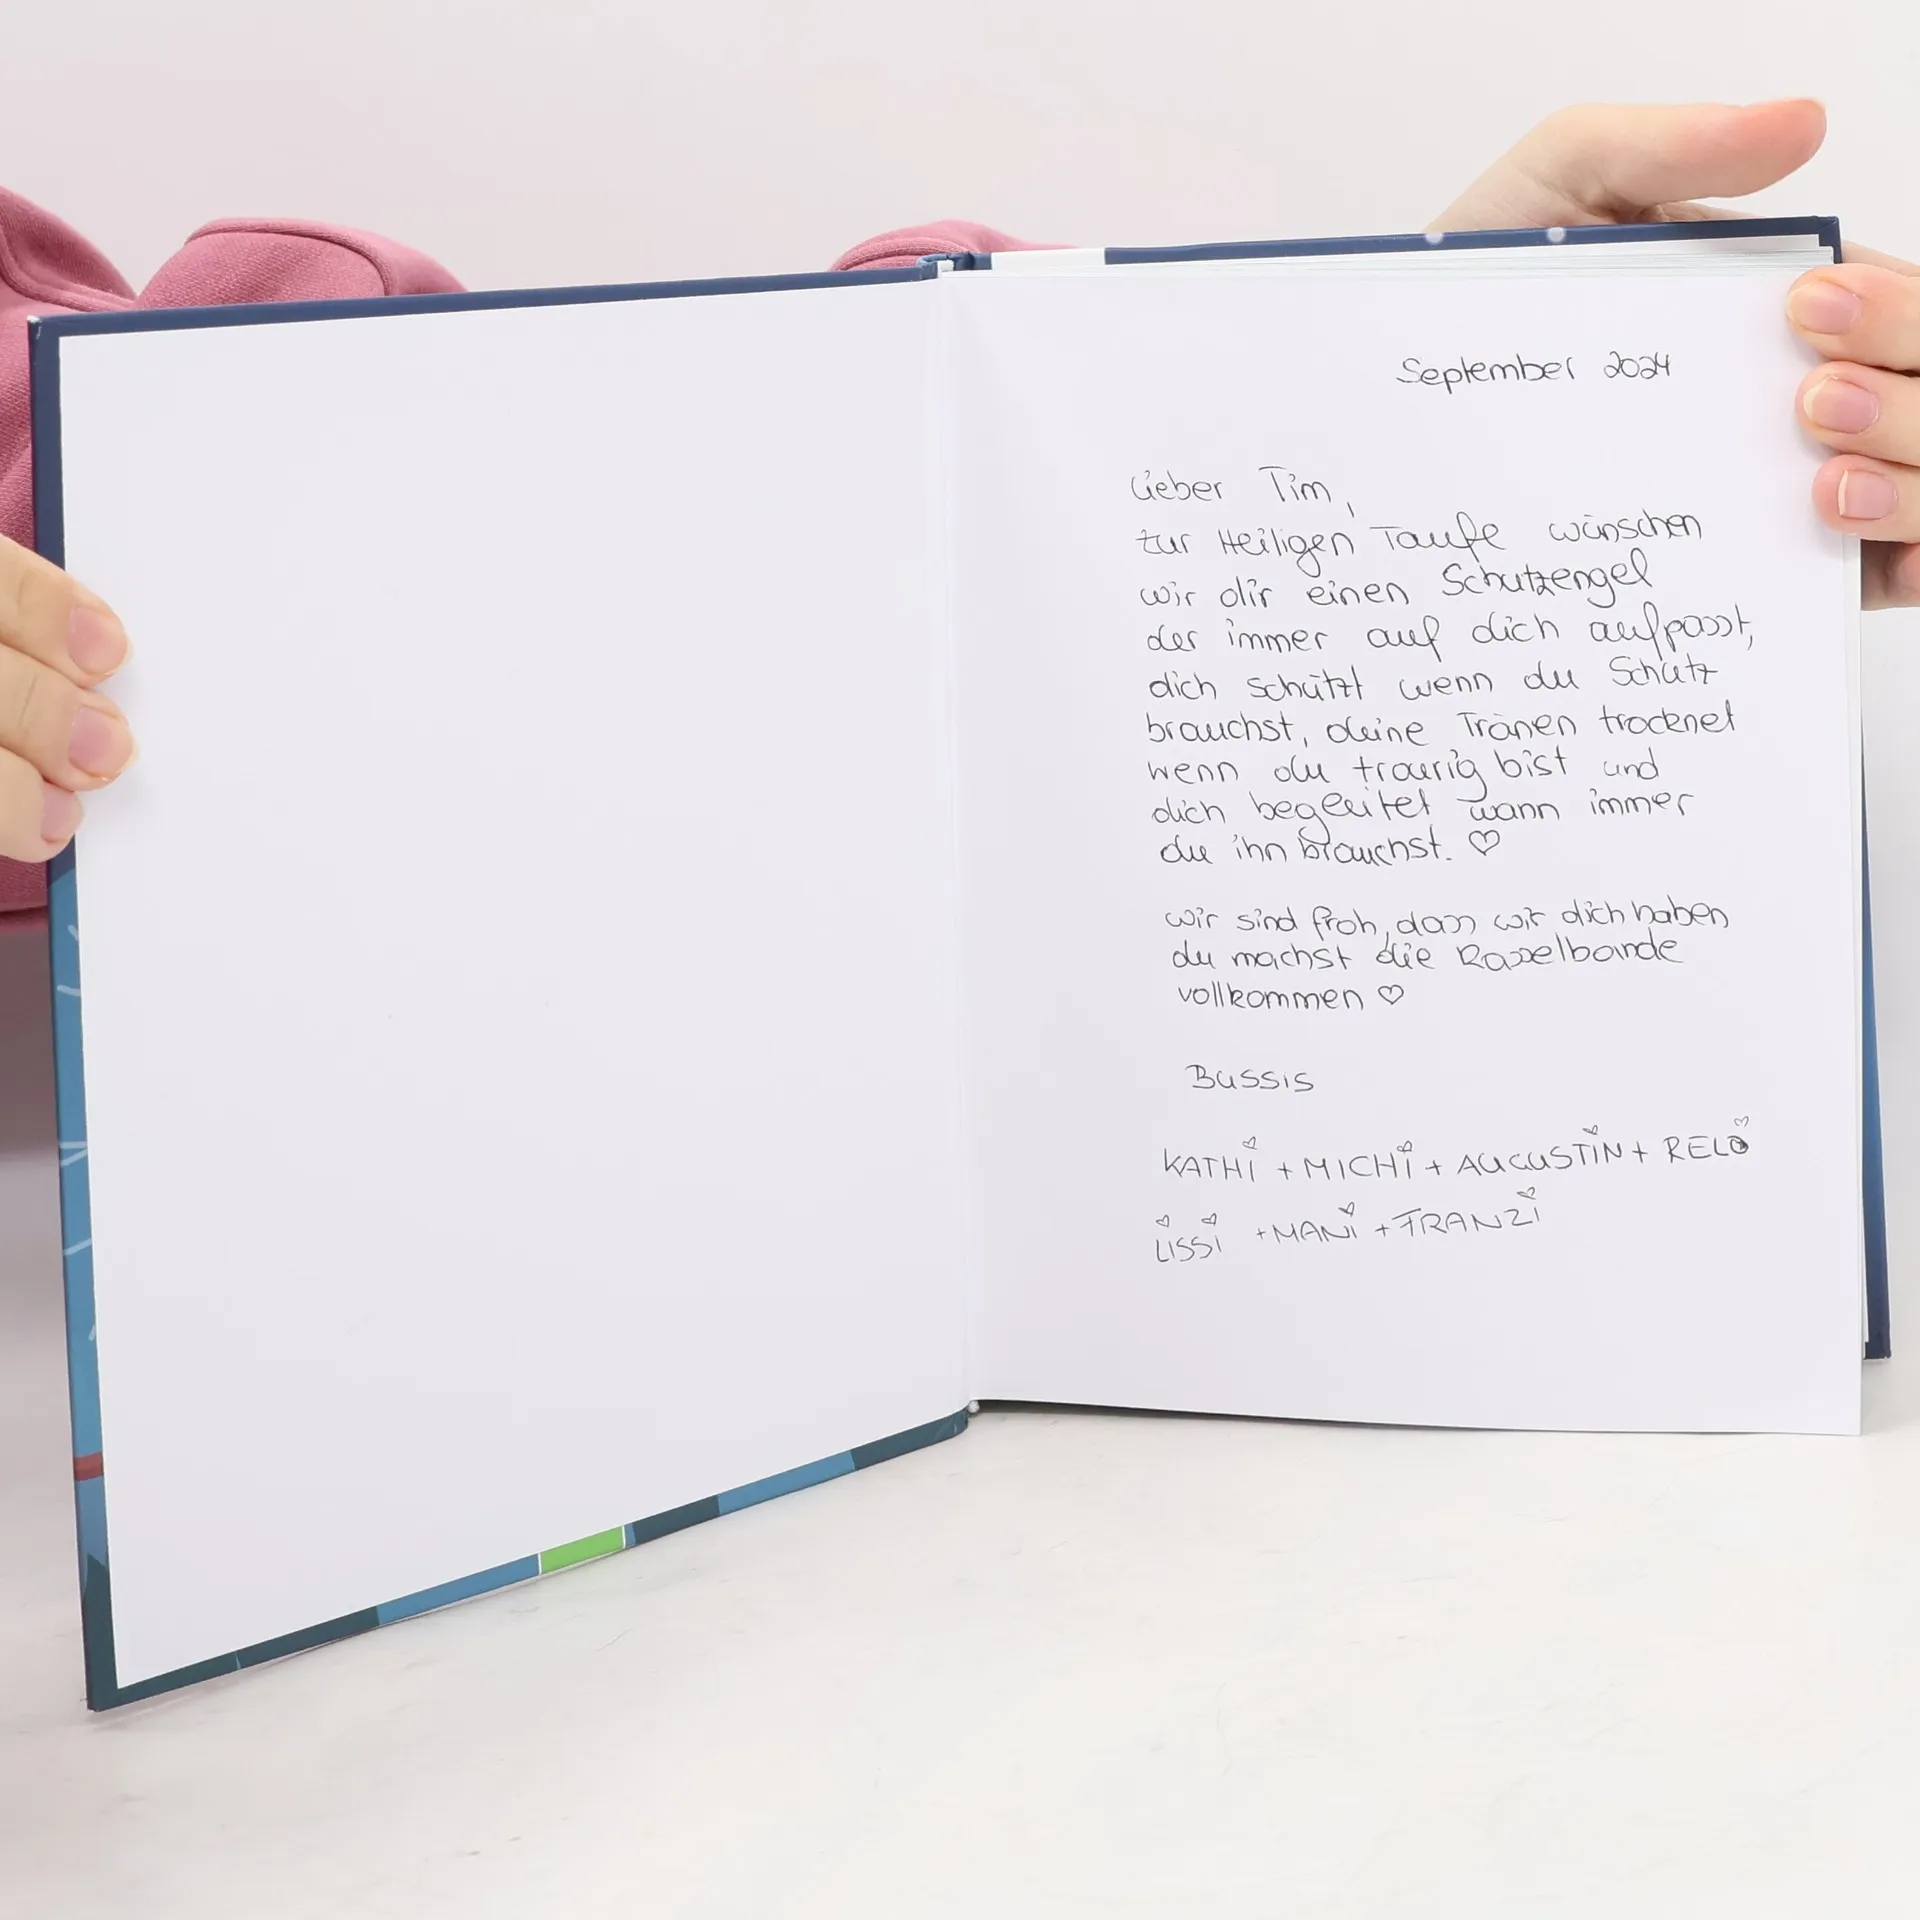 September 2024
Lieber Tim,
zur Heiligen Taufe wünschen
wir dir einen Schutzengel
der immer auf dich aufpasst,
dich schützt wenn du Schutz
brauchst, deine Tränen trocknet
wenn du traurig bist und
dich begleitet wann immer
du ihn brauchst. ♡
wir sind froh, dass wir dich haben
du machst die Rasselbande
vollkommen ♡
Bussis
KATHI + MICHI + AUGUSTIN + RELO
LISSI + MANI + FRANZI